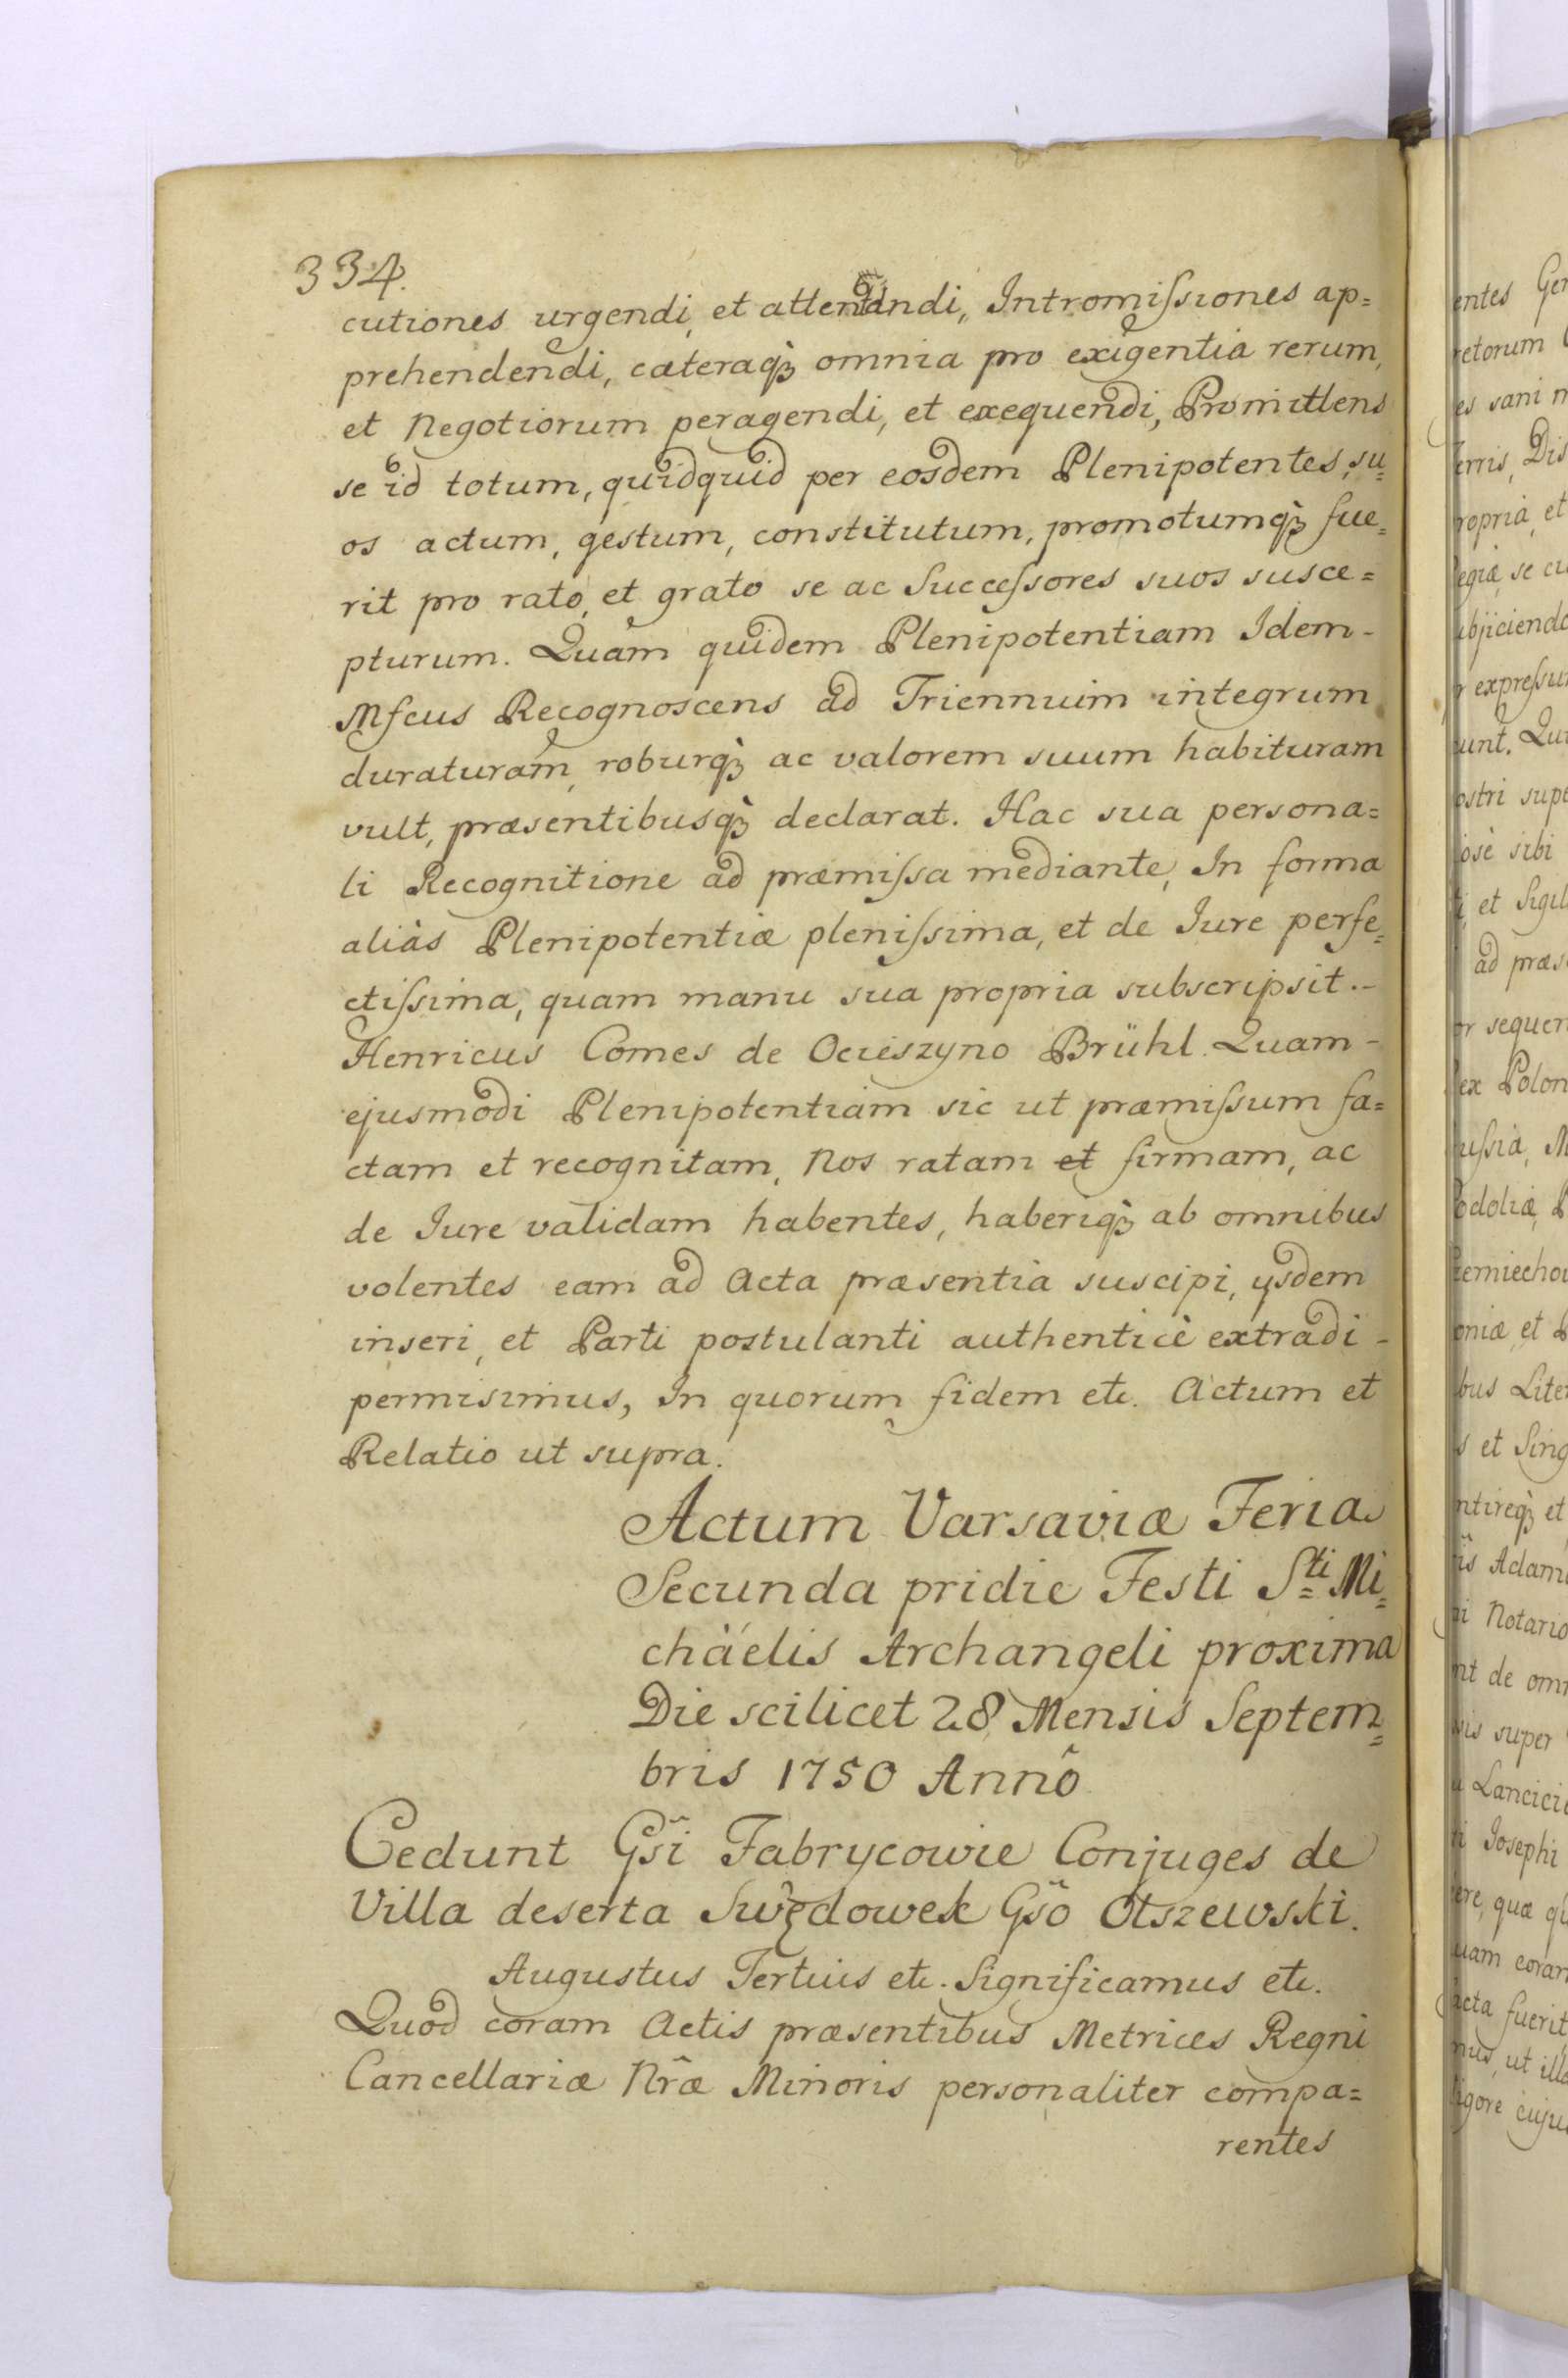 334.
cutiones urgendi, et attentandi, Intromiſsiones ap=
prehendendi, cæteraqꝫ omnia pro exigentia rerum,
et Negotiorum peragendi, et exequendi, Promittens
se id totum, quidquid per eosdem Plenipotentes, su=
os actum, gestum, constitutum, promotumqꝫ fue=
rit pro rato, et grato se ac Succeſsores suos susce=
pturum. Quam quidem Plenipotentiam Idem-
Mfcus Recognoscens ad Triennuim integrum
duraturam, roburqꝫ ac valorem suum habituram
vult, præsentibusqꝫ declarat. Hac sua persona=
li Recognitione ad præmiſsa mediante, In forma
aliàs Plenipotentiæ pleniſsima, et de Iure perfe=
ctiſsima, quam manu sua propria subscripsit.-
Henricus Comes de Ocieszyno Brühl. Quam-
ejusmodi Plenipotentiam sic ut præmiſsum fa=
ctam et recognitam, Nos ratam et firmam, ac
de Iure validam habentes, haberiqꝫ ab omnibus
volentes eam ad Acta præsentia suscipi, ysdem
inseri, et Parti postulanti authenticè extradi-
permisimus, In quorum fidem etc. Actum et
Relatio ut supra.
Actum Varsaviæ Feria
Secunda pridie Festi Sti Mi=
chäelis Archangeli proxima
Die scilicet 28 Mensis Septem=
bris 1750 Annô
Cedunt Gsi Fabrycowie Conjuges de
Villa deserta Swędowek Gso Olszewski.
Augustus Tertius etc. Significamus etc.
Quod coram Actis præsentibus Metrices Regni
Cancellariæ Nræ Minoris personaliter compa=
rentes
entes
retorum
es sani
Dis
ropria, et
egiæ, se
expreſsu
unt. Qui
ostri supe
osè sibi
et Sigil
ad præs
sequen
ex Polon
uſsia, M
odoliæ, P
oniæ et
bus Lite
s et Sing
ntireqꝫ et
Adam
Notario
nt de om
super
Lancici
Iosephi
ere, quæ
uam coram
acta fuerit
ut illa
igore cuju